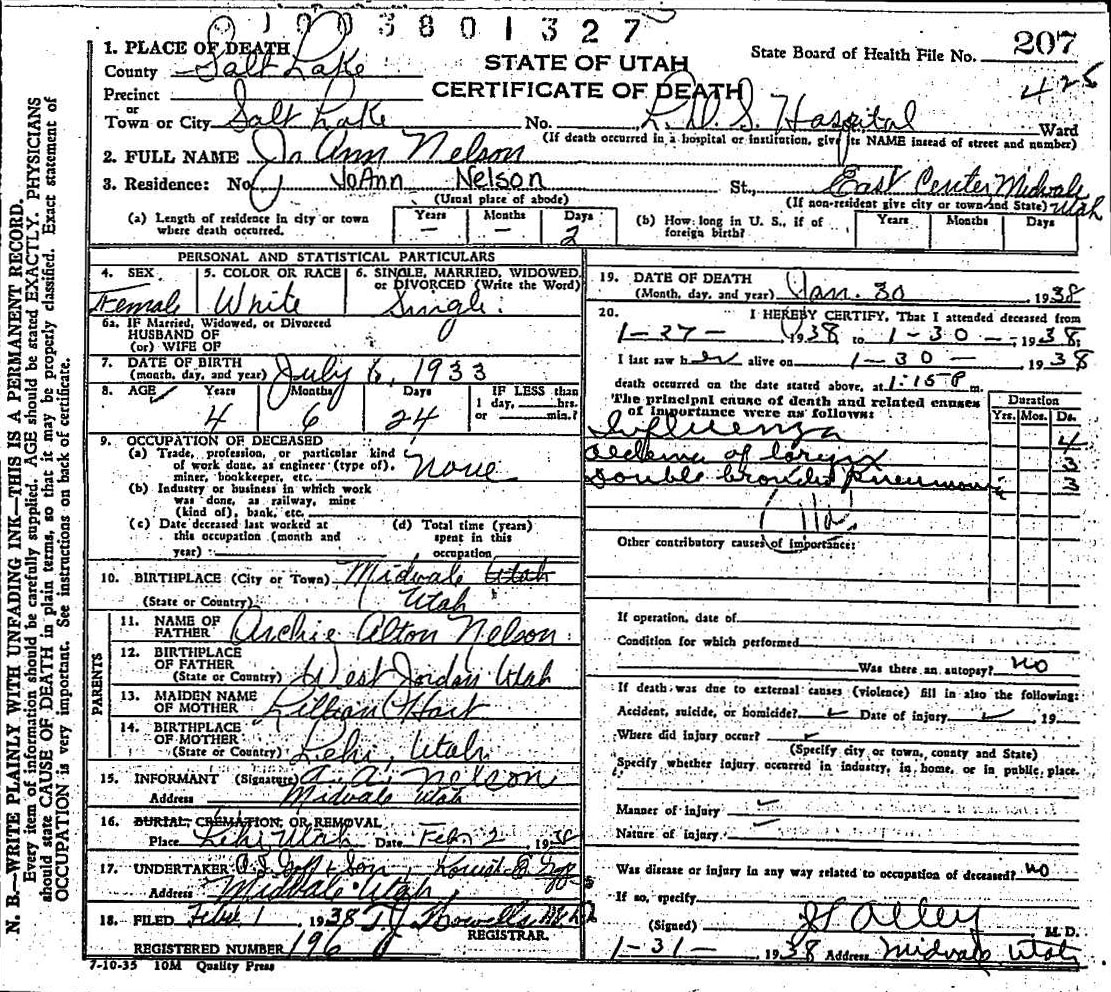 003801327
1. PLACE OF DEATH
County Salt Lake
STATE OF UTAH
CERTIFICATE OF DEATH
State Board of Health File No. 207
425
Precinct
or
Town or City Salt Lake No. L.D.S. Hospital Ward
(If death occurred in a hospital or institution, give its NAME instead of street and number)
2. FULL NAME Jo Ann Nelson
3. Residence: No. JoAnn Nelson St., East Center Midvale Utah
(Usual place of abode) (If non-resident give city or town and State)
(a) Length of residence in city or town where death occurred. Years — Months — Days 2
(b) How long in U. S., if of foreign birth? Years Months Days
PERSONAL AND STATISTICAL PARTICULARS
4. SEX Female
5. COLOR OR RACE White
6. SINGLE, MARRIED, WIDOWED, or DIVORCED (Write the Word) Single.
6a. IF Married, Widowed, or Divorced
HUSBAND OF
(or) WIFE OF
7. DATE OF BIRTH
(month, day, and year) July 6, 1933
8. AGE Years 4 Months 6 Days 24
IF LESS than
1 day, hrs.
or min.?
9. OCCUPATION OF DECEASED
(a) Trade, profession, or particular kind
of work done, as engineer (type of),
miner, bookkeeper, etc. None
(b) Industry or business in which work
was done, as railway, mine
(kind of), bank, etc.
(c) Date deceased last worked at
this occupation (month and
year)
(d) Total time (years)
spent in this
occupation
10. BIRTHPLACE (City or Town) Midvale Utah
(State or Country) Utah
PARENTS
11. NAME OF
FATHER Archie Alton Nelson
12. BIRTHPLACE
OF FATHER
(State or Country) West Jordan Utah
13. MAIDEN NAME
OF MOTHER Lillian Hart
14. BIRTHPLACE
OF MOTHER
(State or Country) Lehi, Utah
15. INFORMANT (Signature) A. A. Nelson
Address Midvale Utah
16. BURIAL, CREMATION, OR REMOVAL
Place Lehi, Utah Date Feb. 2, 1938
17. UNDERTAKER & Son
Address Midvale Utah
18. FILED Feb 1 1938 T. J. Howells
REGISTRAR.
REGISTERED NUMBER 196
7-10-35 10M Quality Press
19. DATE OF DEATH
(Month, day, and year) Jan. 30, 1938
20. I HEREBY CERTIFY, That I attended deceased from
1-27- 1938 to 1-30-, 1938;
I last saw her alive on 1-30- 1938
death occurred on the date stated above, at 1:15 P m.
The principal cause of death and related causes
of importance were as follows:
Duration
Yrs. Mos. Ds.
Influenza 4
Oedema of larynx 3
Double broncho Pneumonia 3
Other contributory causes of importance:
If operation, date of
Condition for which performed
Was there an autopsy? no
If death was due to external causes (violence) fill in also the following:
Accident, suicide, or homicide? Date of injury , 19
Where did injury occur?
(Specify city or town, county and State)
Specify whether injury occurred in industry, in home, or in public place.
Manner of injury
Nature of injury
Was disease or injury in any way related to occupation of deceased? no
If so, specify
(Signed) Alley M. D.
1-31- 1938 Address Midvale Utah
N. B.—WRITE PLAINLY WITH UNFADING INK—THIS IS A PERMANENT RECORD.
Every item of information should be carefully supplied. AGE should be stated EXACTLY. PHYSICIANS
should state CAUSE OF DEATH in plain terms, so that it may be properly classified. Exact statement of
OCCUPATION is very important. See instructions on back of certificate.